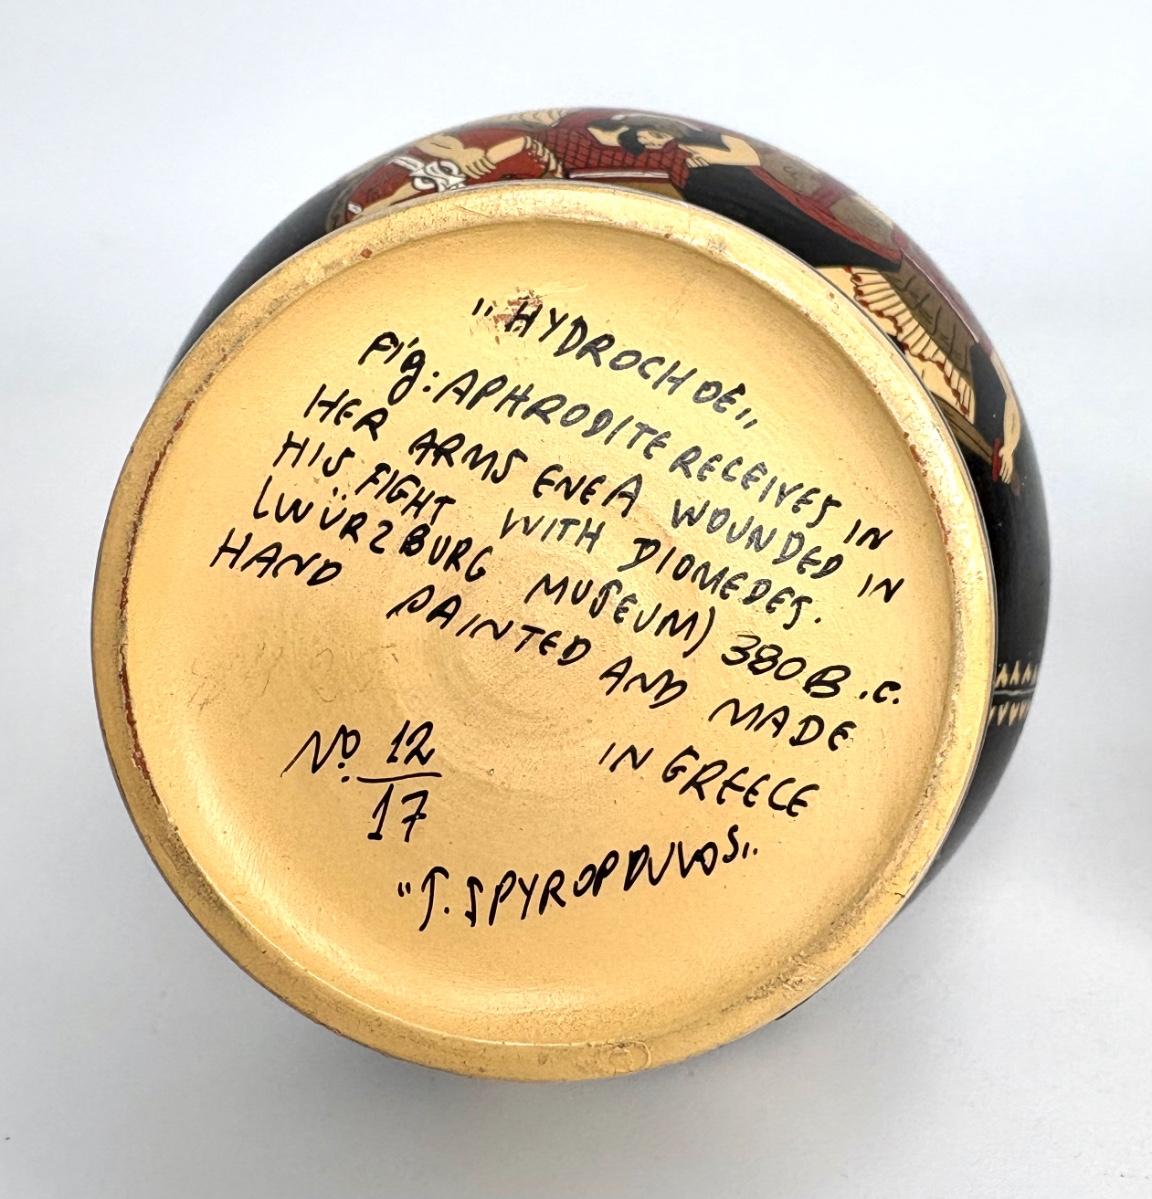 "HYDROCHOÉ"
Fig: APHRODITE RECEIVES IN
HER ARMS ENEA WOUNDED IN
HIS FIGHT WITH DIOMEDES.
(WÜRZBURG MUSEUM) 380 B.C.
HAND PAINTED AND MADE
IN GREECE
No. 12/17
"S. SPYROPOULOS"